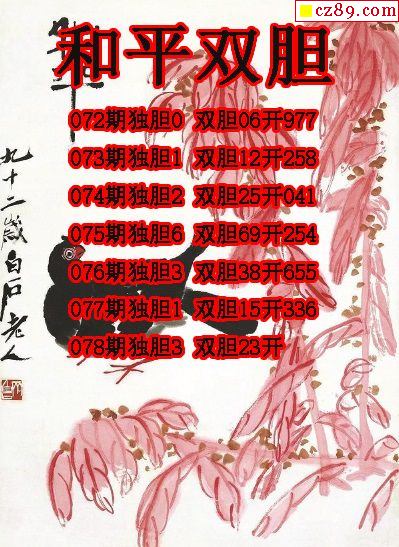 cz89.com
和平双胆
072期独胆0 双胆06开977
073期独胆1 双胆12开258
074期独胆2 双胆25开041
075期独胆6 双胆69开254
076期独胆3 双胆38开655
077期独胆1 双胆15开336
078期独胆3 双胆23开
九十二岁白石老人